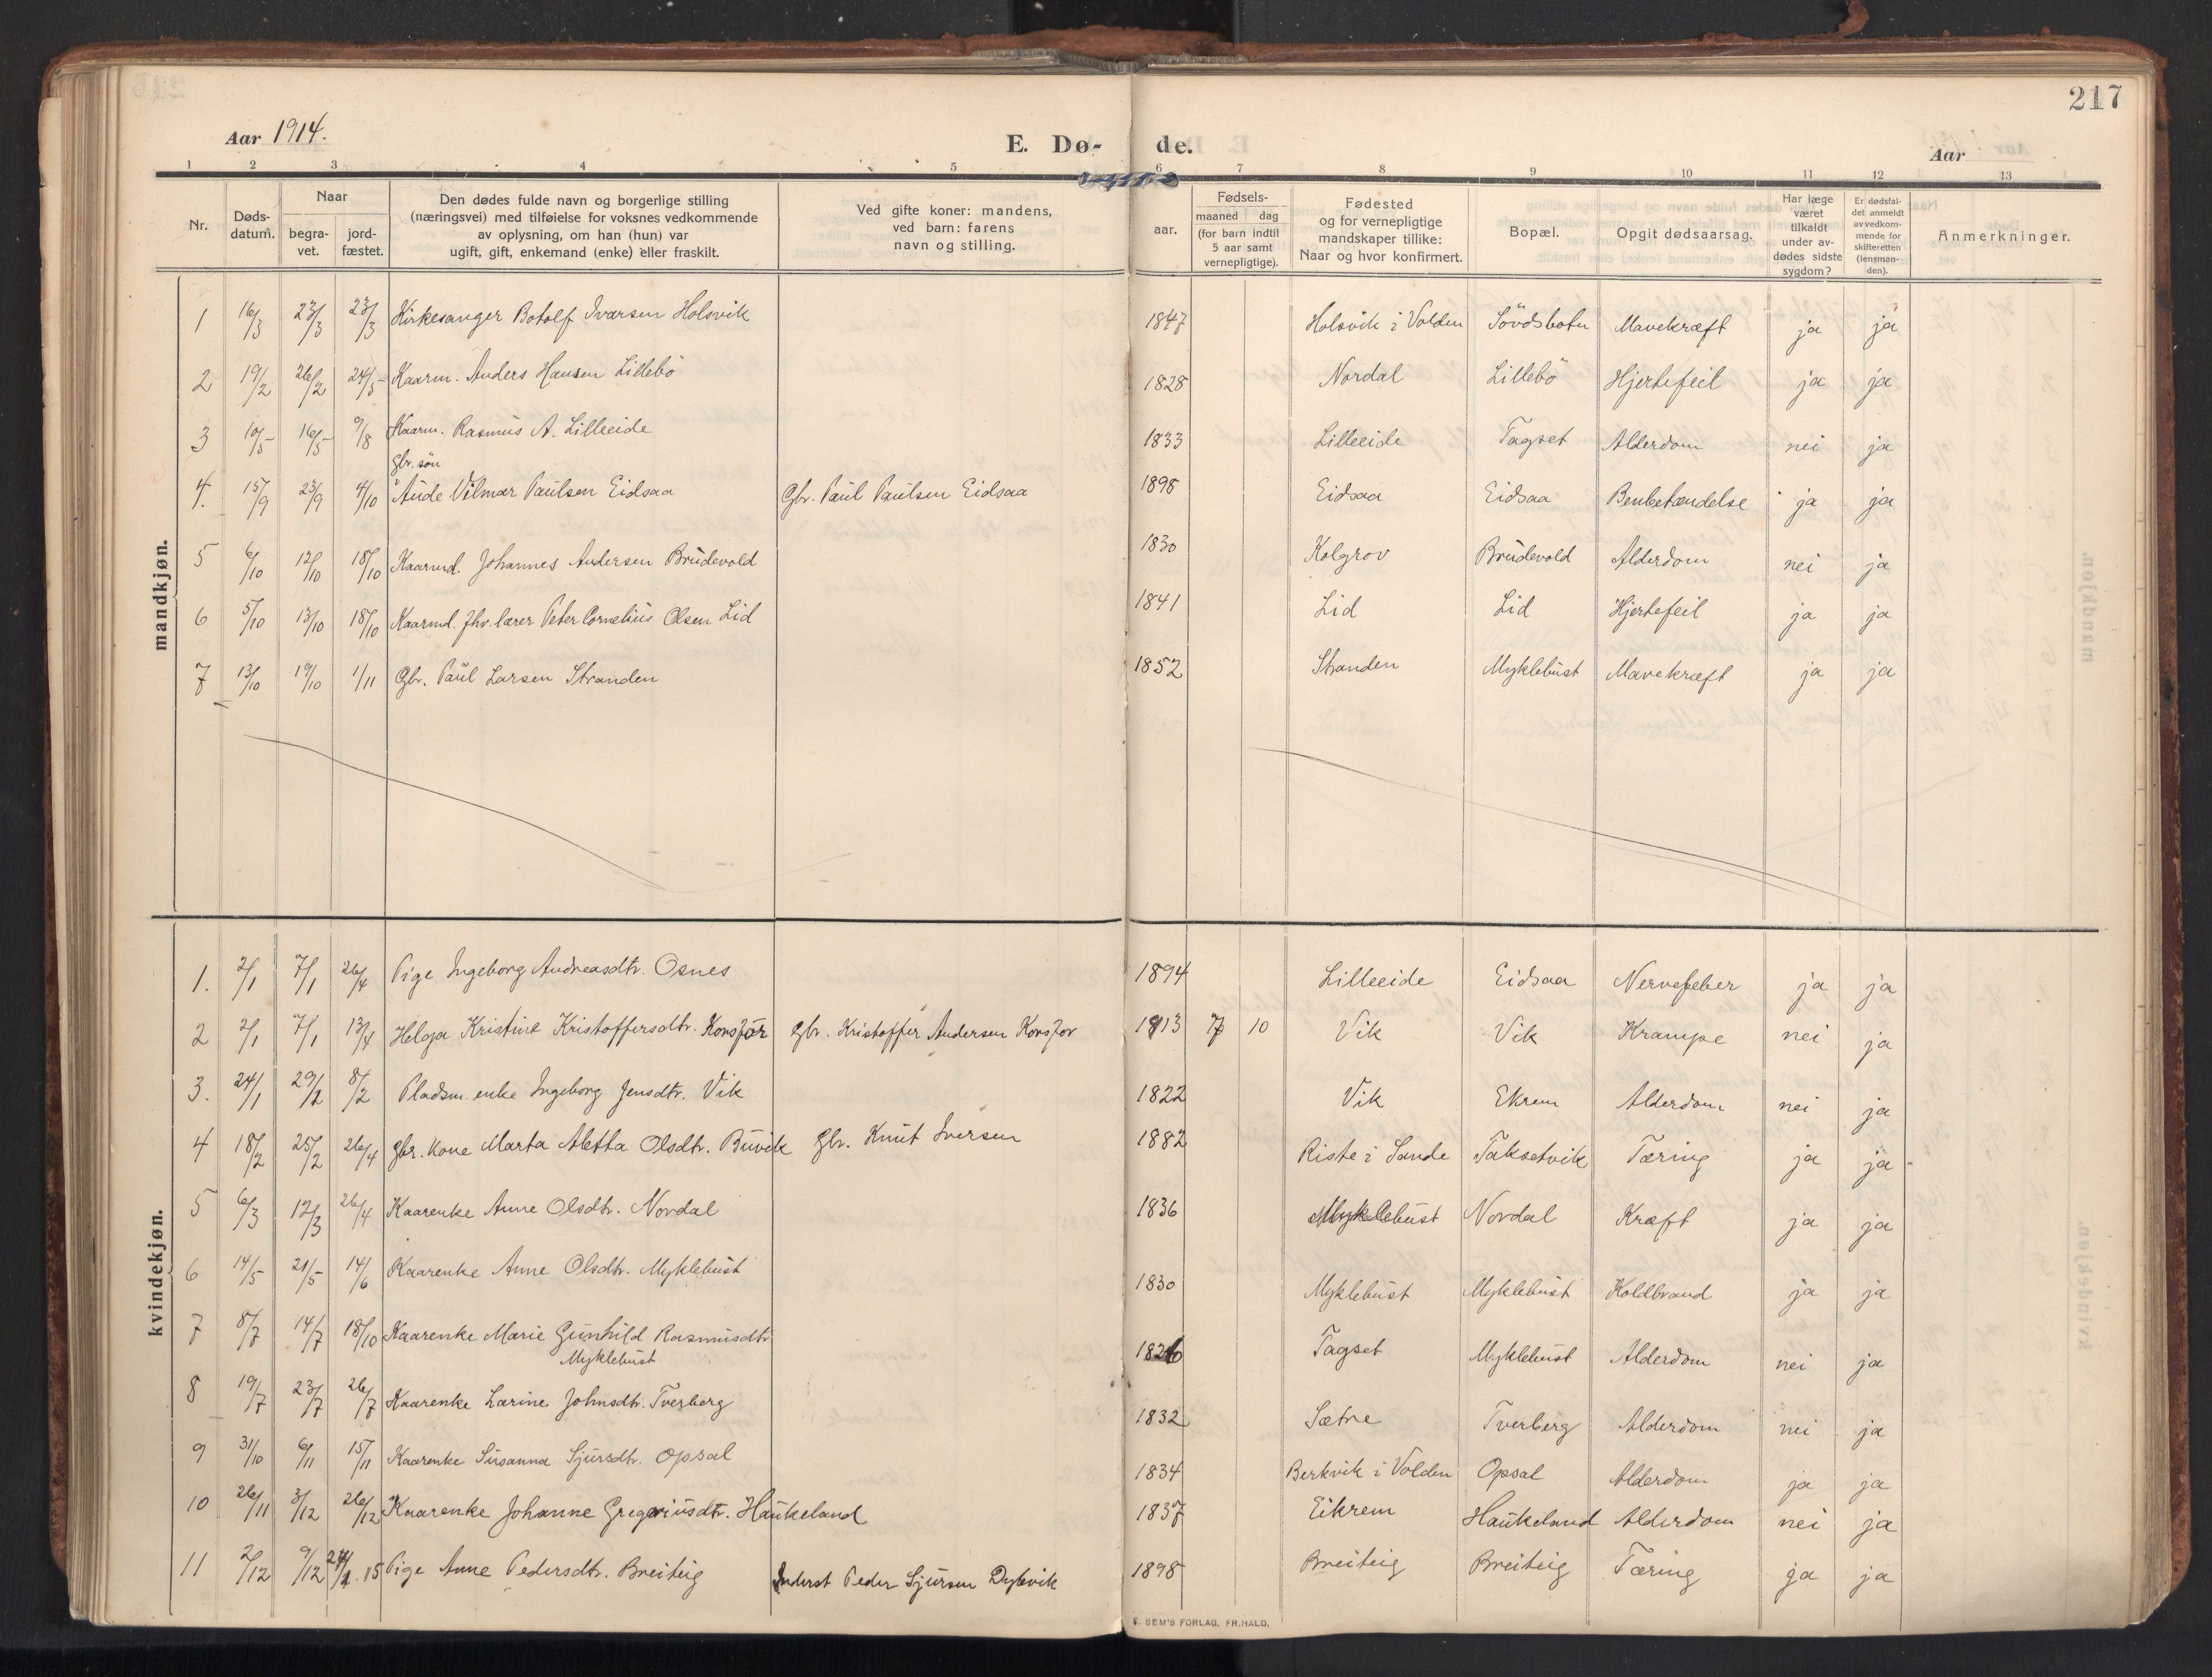 217
Aar 1914.
E. Dø- de.
Aar
1 2 3 4 5 6 7 8 9 10 11 12 13
Nr.
Døds-datum.
Naar
begra-vet.
jord-fæstet.
Den dødes fulde navn og borgerlige stilling
(næringsvei) med tilføielse for voksnes vedkommende
av oplysning, om han (hun) var
ugift, gift, enkemand (enke) eller fraskilt.
Ved gifte koner: mandens,
ved barn: farens
navn og stilling.
Fødsels-
aar.
maaned dag
(for barn indtil
5 aar samt
vernepligtige).
Fødested
og for vernepligtige
mandskaper tillike:
Naar og hvor konfirmert.
Bopæl.
Opgit dødsaarsag.
Har læge
været
tilkaldt
under av-
dødes sidste
sygdom?
Er dødsfal-
det anmeldt
av vedkom-
mende for
skifteretten
(lensman-
den).
Anmerkninger.
mandkjøn.
1 16/3 23/3 23/3 Kirkesanger Botolf Ivarsen Holsvik 1847 Holsvik i Volden Søvdsbotn Mavekræft ja ja
2 19/2 26/2 24/5 Kaarm. Anders Hansen Lillebø 1828 Nordal Lillebø Hjertefeil ja ja
3 10/5 16/5 9/8 Kaarm. Rasmus A. Lilleeide 1833 Lilleeide Tagset Alderdom nei ja
Gbr. søn
4. 15/9 23/9 4/10 Aude Vilmar Paulsen Eidsaa Gbr. Paul Paulsen Eidsaa 1898 Eidsaa Eidsaa Benbetændelse ja ja
5 6/10 12/10 18/10 Kaarmd. Johannes Andersen Brudevold 1830 Kolgrov Brudevold Alderdom nei ja
6 5/10 13/10 18/10 Kaarmd. fhv. lærer Peter Cornelius Olsen Lid 1841 Lid Lid Hjertefeil ja ja
7 13/10 19/10 1/11 Gbr. Paul Larsen Stranden 1852 Stranden Myklebust Mavekræft ja ja
kvindekjøn.
1. 2/1 7/1 26/4 Pige Ingeborg Andreasdtr. Osnes 1894 Lilleeide Eidsaa Nervefeber ja ja
2 2/1 7/1 13/4 Helga Kristine Kristoffersdtr. Korsfor Gbr. Kristoffer Andersen Korsfor 1913 7 10 Vik Vik Krampe nei ja
3. 24/1 29/1 8/2 Pladsm. enke Ingeborg Jensdtr. Vik 1822 Vik Ekrem Alderdom nei ja
4 18/2 25/2 26/4 Gbr. kone Marta Aletta Olsdtr. Buvik Gbr. Knut Iversen 1882 Riste i Sande Taksetvik Tæring ja ja
5 6/3 12/3 26/4 Kaarenke Anne Olsdtr. Nordal 1836 Myklebust Nordal Kræft ja ja
6 14/5 21/5 14/6 Kaarenke Anne Olsdtr. Myklebust 1830 Myklebust Myklebust Koldbrand ja ja
7 8/7 14/7 18/10 Kaarenke Marie Gunhild Rasmusdtr. 1826 Tagset Myklebust Alderdom nei ja
Myklebust
8 19/7 23/7 26/7 Kaarenke Larine Johnsdtr. Tverberg 1832 Sætre Tverberg Alderdom nei ja
9 31/10 6/11 15/11 Kaarenke Susanna Sjursdtr. Opsal 1834 Berkvik i Volden Opsal Alderdom ja ja
10 26/11 3/12 26/12 Kaarenke Johanne Gregoriusdtr. Haukeland 1837 Eikrem Haukeland Alderdom nei ja
11 2/12 9/12 15 Pige Anne Pedersdtr. Breiteig Inderst Peder Sjursen Dybvik 1898 Breiteig Breiteig Tæring ja ja
SEM'S FORLAG, FR.HALD.